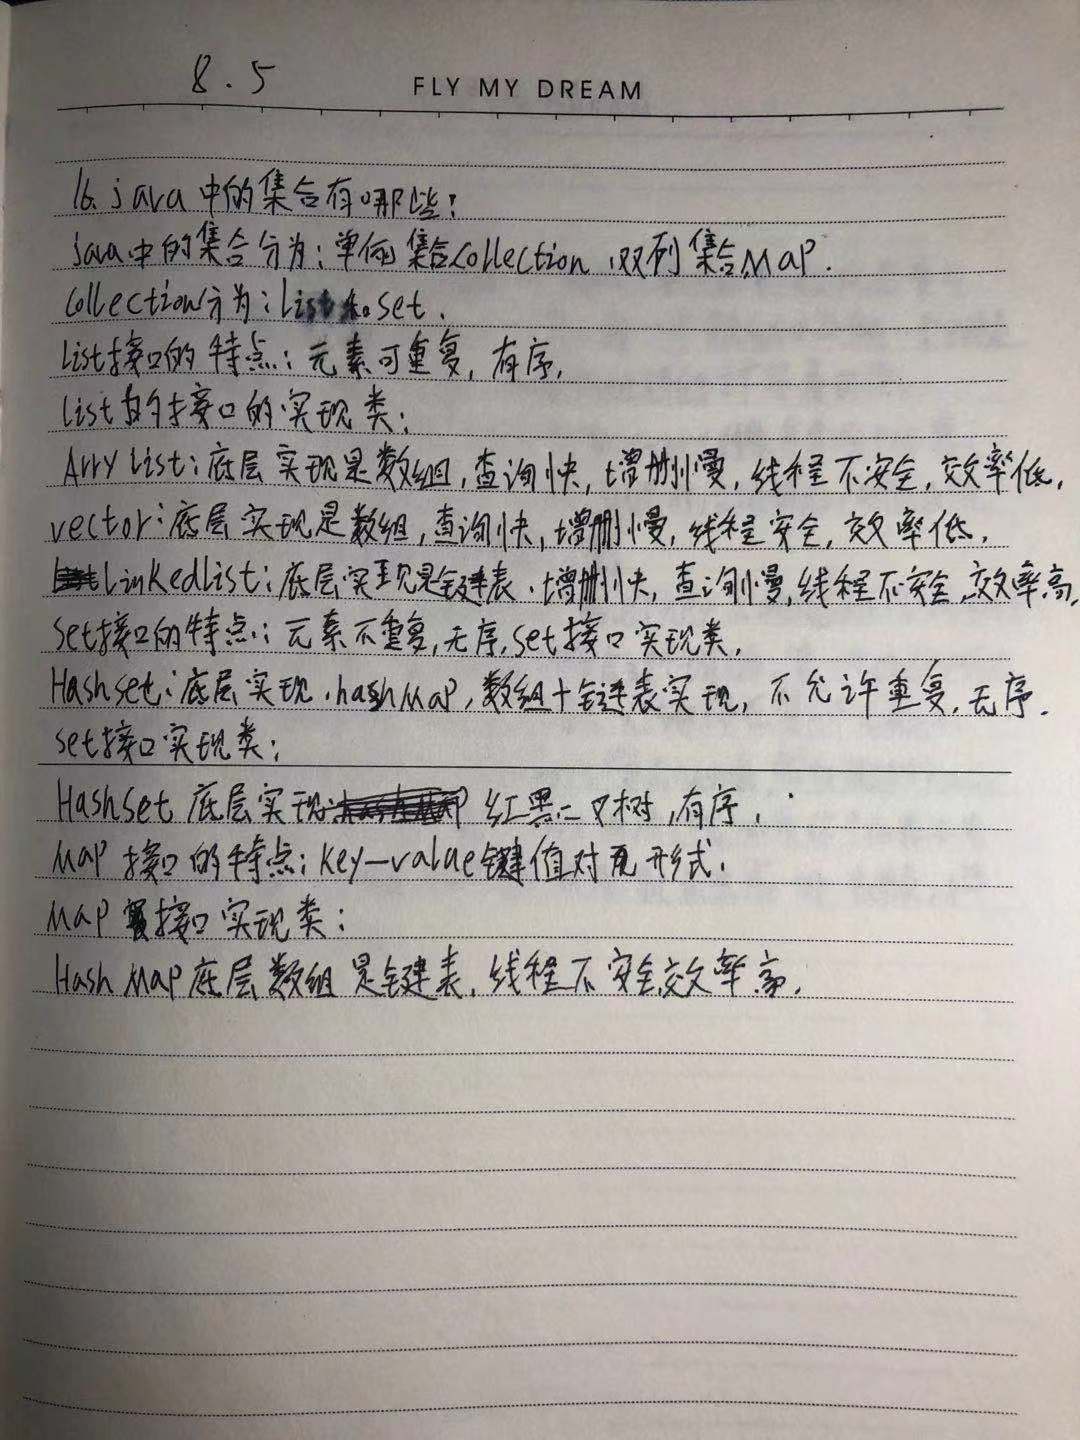 8.5
FLY MY DREAM
16. java中的集合有哪些:
java中的集合分为:单例集合Collection,双列集合MaP.
Collection分为:list和set.
List接口的特点:元素可重复,有序,
list的接口的实现类:
Arry list:底层实现是数组,查询快,增删慢,线程不安全,效率低,
vector:底层实现是数组,查询快,增删慢,线程安全,效率低,
Linkedlist:底层实现是链表.增删快,查询慢,线程不安全,效率高,
set接口的特点:元素不重复,无序,set接口实现类,
Hashset:底层实现.hashMaP,数组+链表实现,不允许重复,无序.
set接口实现类:
HashSet底层实现 红黑二叉树,有序,
MaP接口的特点:key-value键值对 形式.
MaP 接口实现类:
Hash MaP底层数组是链表,线程不安全,效率高,